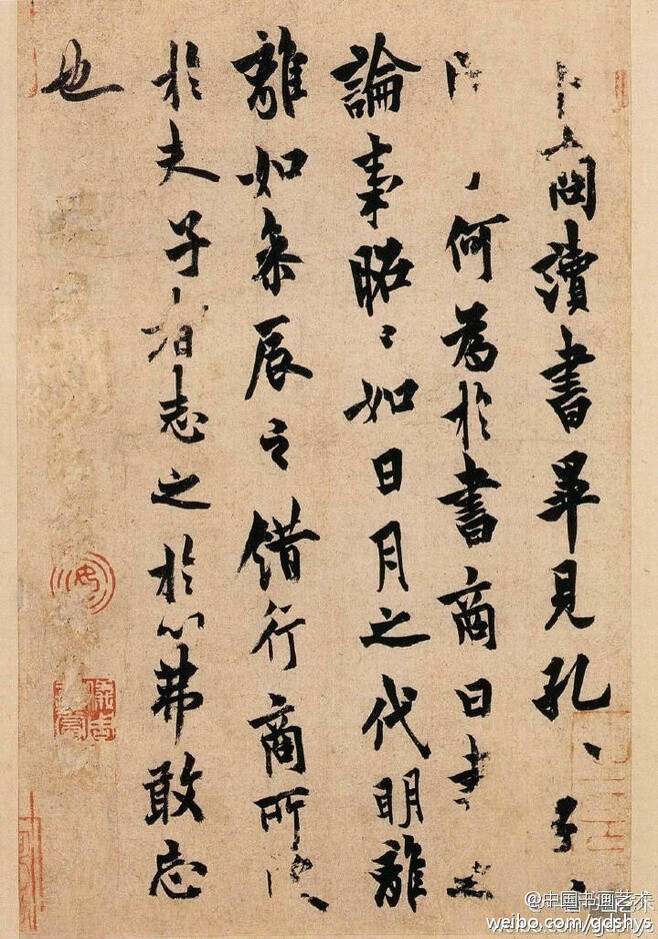 卜商讀書畢見孔〻子〻
何為於書商曰書之
論事昭〻如日月之代明離
離如參辰之錯行商所
於夫子者志之於心弗敢忘
也
@中国书画艺术
weibo.com/gdshys